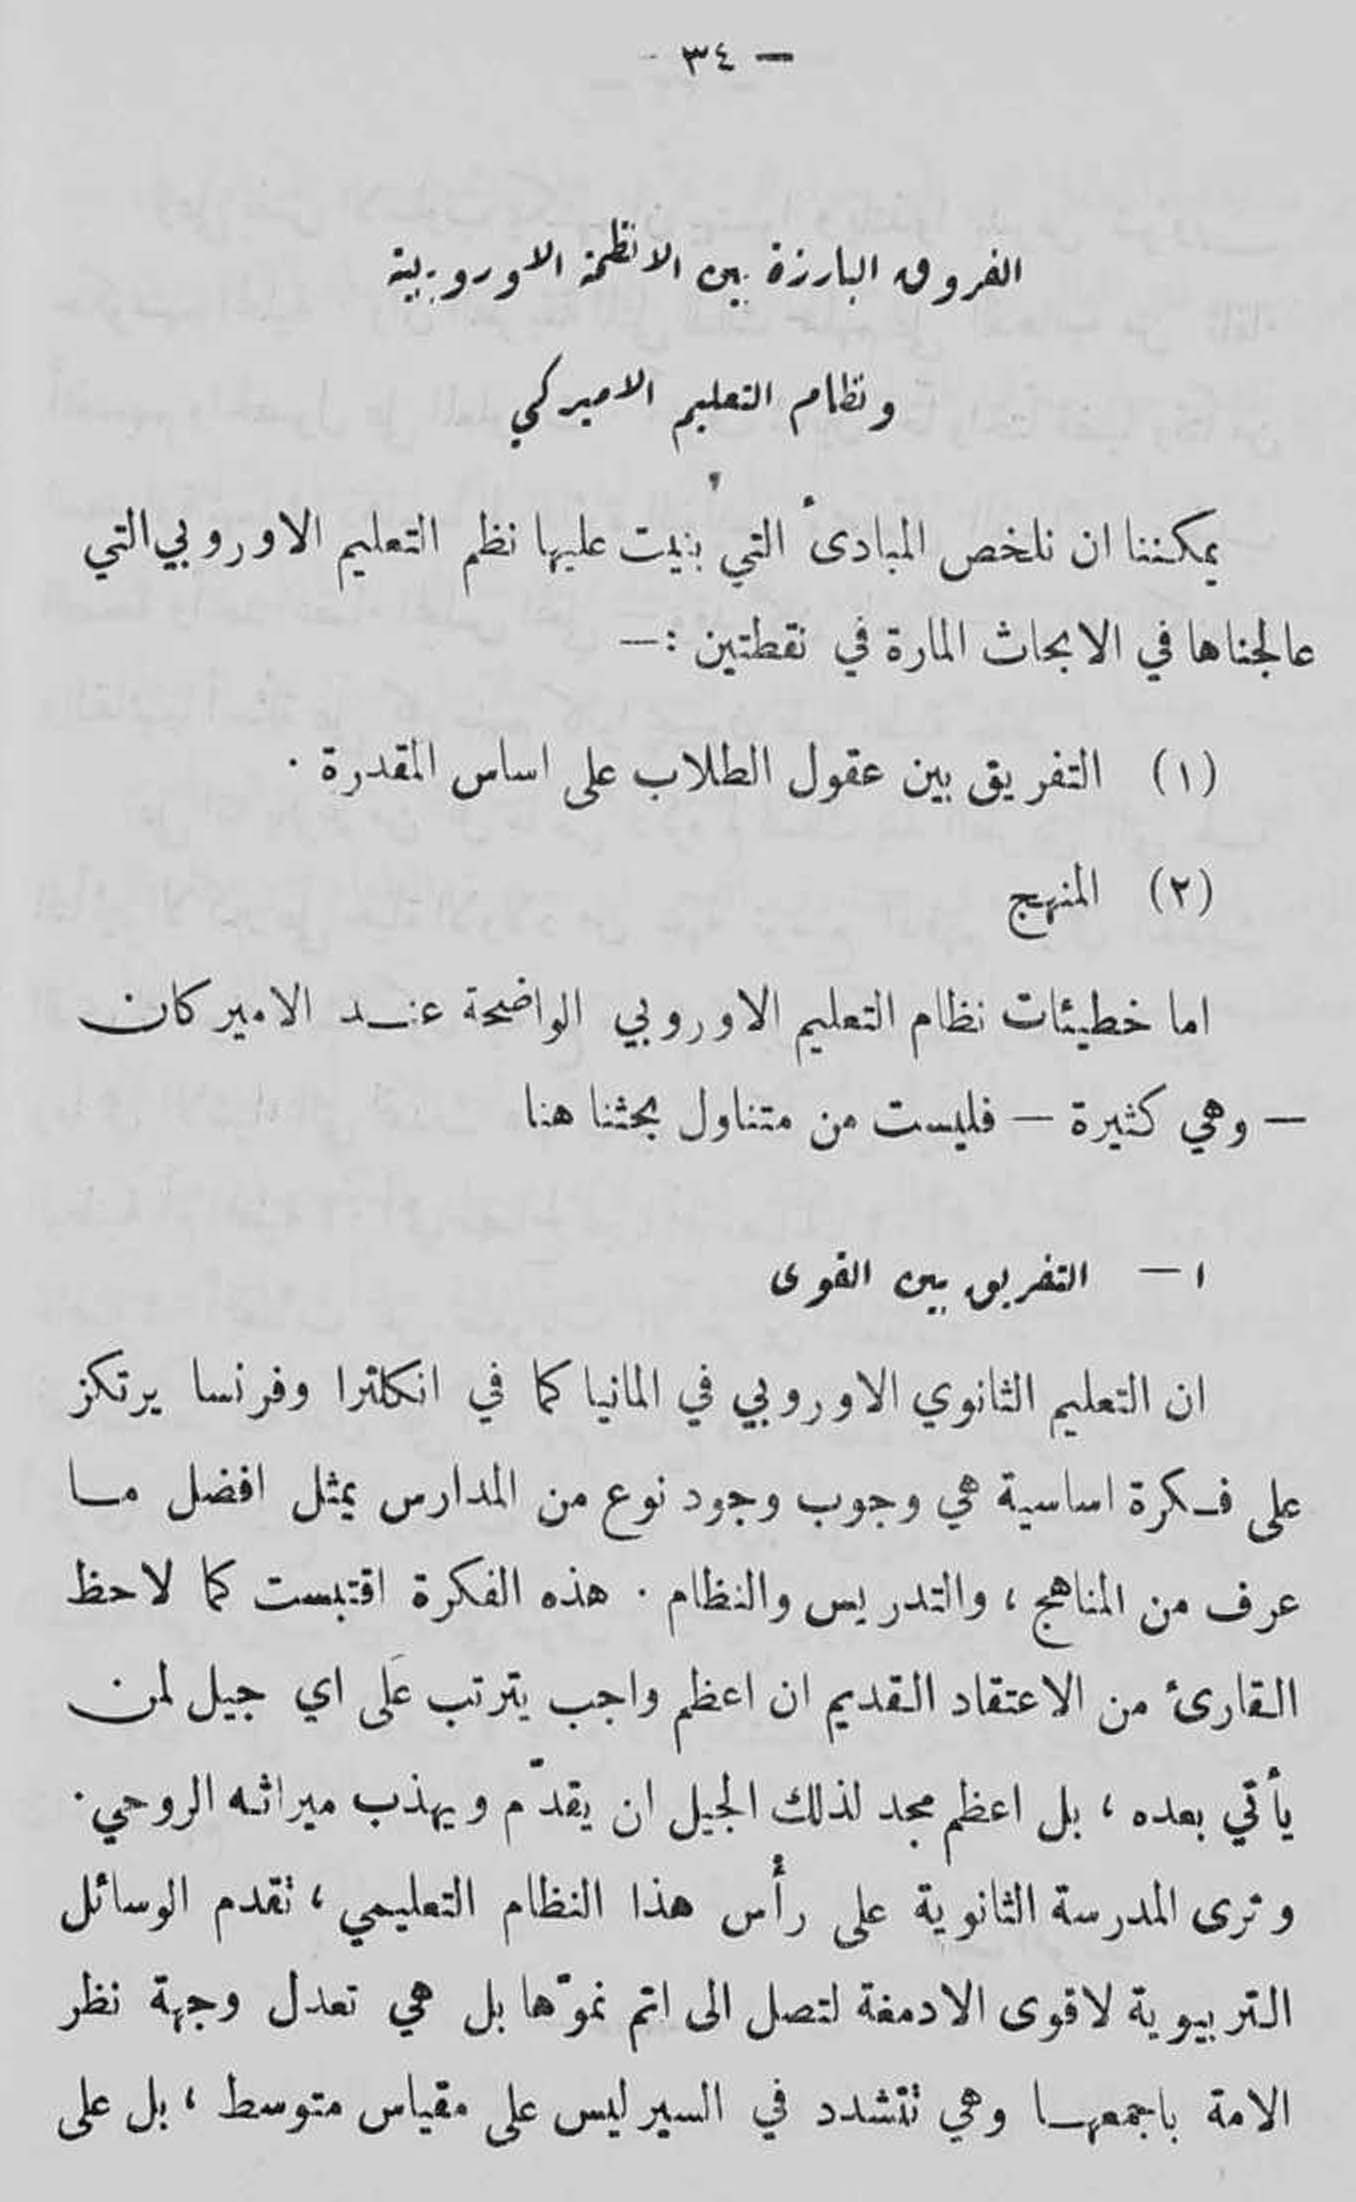 — ٣٤ -
الفروق البارزة بين الانظمة الاوروبية
ونظام التعليم الاميركي
يمكننا ان نلخص المبادئ التي بنيت عليها نظم التعليم الاوروبي التي
عالجناها في الابحاث المارة في نقطتين : —
(١) التفريق بين عقول الطلاب على اساس المقدرة ٠
(٢) المنهج
اما خطيئات نظام التعليم الاوروبي الواضحة عنـد الاميركان
— وهي كثيرة — فليست من متناول بحثنا هنا
١ — التفريق بين القوى
ان التعليم الثانوي الاوروبي في المانيا كما في انكلترا وفرنسا يرتكز
على فـكرة اساسية هي وجوب وجود نوع من المدارس يمثل افضل مـا
عرف من المناهج ، والتدريس والنظام ٠ هذه الفكرة اقتبست كما لاحظ
القارئ من الاعتقاد القديم ان اعظم واجب يترتب عَلى اي جيل لمن
يأتي بعده ، بل اعظم مجد لذلك الجيل ان يقدّم ويهذب ميراثه الروحي ٠
وترى المدرسة الثانوية على رأس هذا النظام التعليمي ، تقدم الوسائل
التربيوية لاقوى الادمغة لتصل الى اتم نموّها بل هي تعدل وجهة نظر
الامة باجمعهـا وهي تتشدد في السير ليس على مقياس متوسط ، بل على